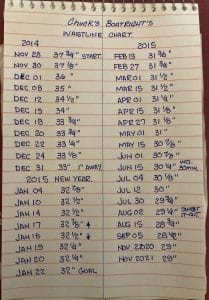 CHUCK'S BOATRIGHT'S
WAISTLINE CHART
2014 2015
NOV 28 37 3/4" START FEB 13 31 3/4"
NOV 30 37 1/8" FEB 27 31 3/4"
DEC 01 36" MAR 01 31 1/2"
DEC 08 35" MAR 15 31 1/2"
DEC 12 34 1/2" APR 01 31 1/4"
DEC 15 34" APR 15 31 1/8"
DEC 18 33 3/4" APR 27 31 1/8"
DEC 20 33 3/4" MAY 01 31"
DEC 22 33 1/4" MAY 15 30 7/8"
DEC 24 33 1/8" JUN 01 30 7/8"
DEC 31 33" 1" AWAY JUN 15 30 3/4"
2015 NEW YEAR JUL 04 30 1/8"
JAN 04 32 5/8" JUL 12 30"
JAN 10 32 1/2" JUL 30 29 3/4"
JAN 14 32 1/2" AUG 02 29 1/4" SWEAT IT-OUT
JAN 17 32 7/8" ↑ AUG 15 28 3/4"
JAN 18 32 1/2" ↓ SEP 05 28 1/2"
JAN 19 32 1/4" NOV 2020 29"
JAN 20 32 1/4" NOV 2021 29"
JAN 22 32" GOAL